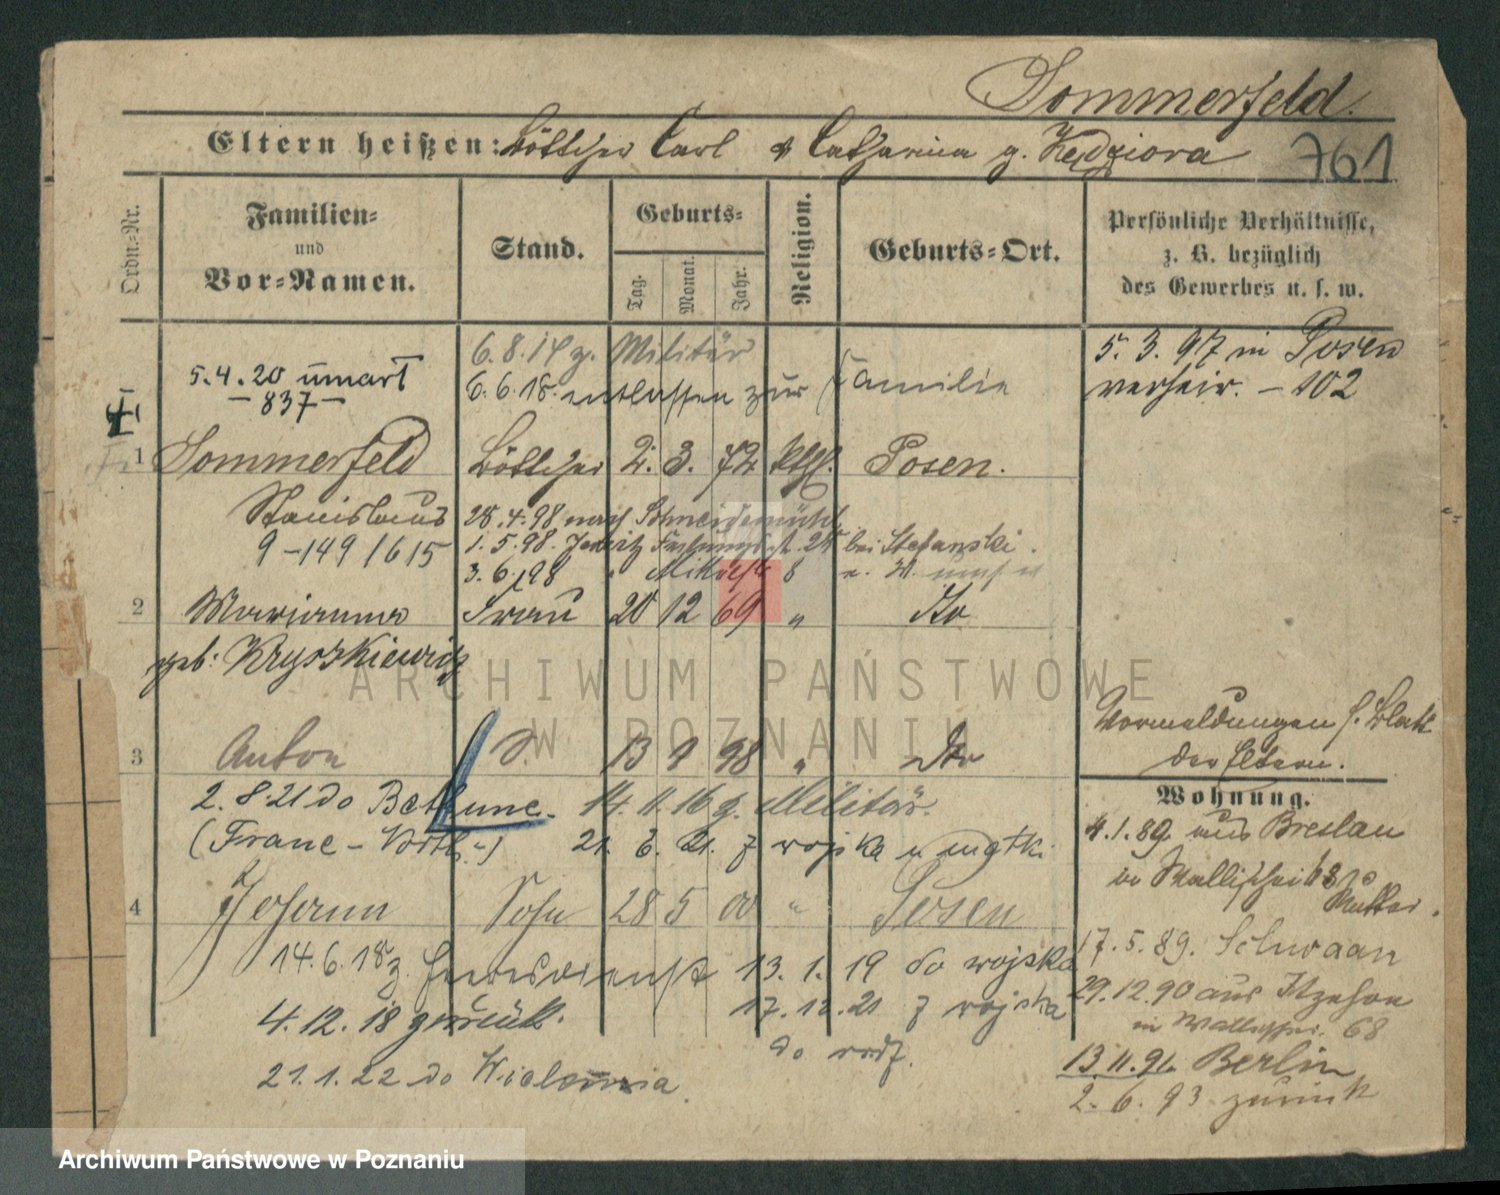 Sommerfeld.
Eltern heißen: Böttcher Carl & Catharina g. Kędziora 761
Ordn.-Nr.
Familien- und Vor-Namen.
Stand.
Geburts-
Tag. Monat. Jahr.
Religion.
Geburts-Ort.
Persönliche Verhältnisse, z. B. bezüglich des Gewerbes u. s. w.
6.8.14 z. Militär
5.4.20 umarł
6.6.18. entlassen zur Familie
—837—
5.3.97 in Posen
verheir. — 102
1 Sommerfeld Böttcher 2. 3. 72 kth. Posen.
Stanislaus 28.4.98 nach Schneidemühl
9—149/615 1.5.98. Jersitz 24 bei Stefanski.
3.6.98 8
2 Marianna Frau 20 12 69 " Do
geb: Kryszkiewicz
Vormeldungen s. Blatt
der Eltern.
3 Anton S. 13 1 98 " Do
Wohnung.
2.8.21 do Bethune. 14.11.16 z. Militär.
4.1.89. aus Breslau
(Franc — 21. 6. 21. z wojska
in Wallischei 68
Mutter.
4 Johann Sohn 28 5 00 " Posen
17.5.89. Schwaan
14.6.18 z. Heeresdienst 13.1.19 do wojska
29.12.90 aus Itzehoe
4.12.18 zurück. 17.12.21 z wojska
in 68
do rodz.
13.11.91. Berlin
21.1.22 do
2.6.93 zurück
ARCHIWUM PAŃSTWOWE
W POZNANIU
Archiwum Państwowe w Poznaniu